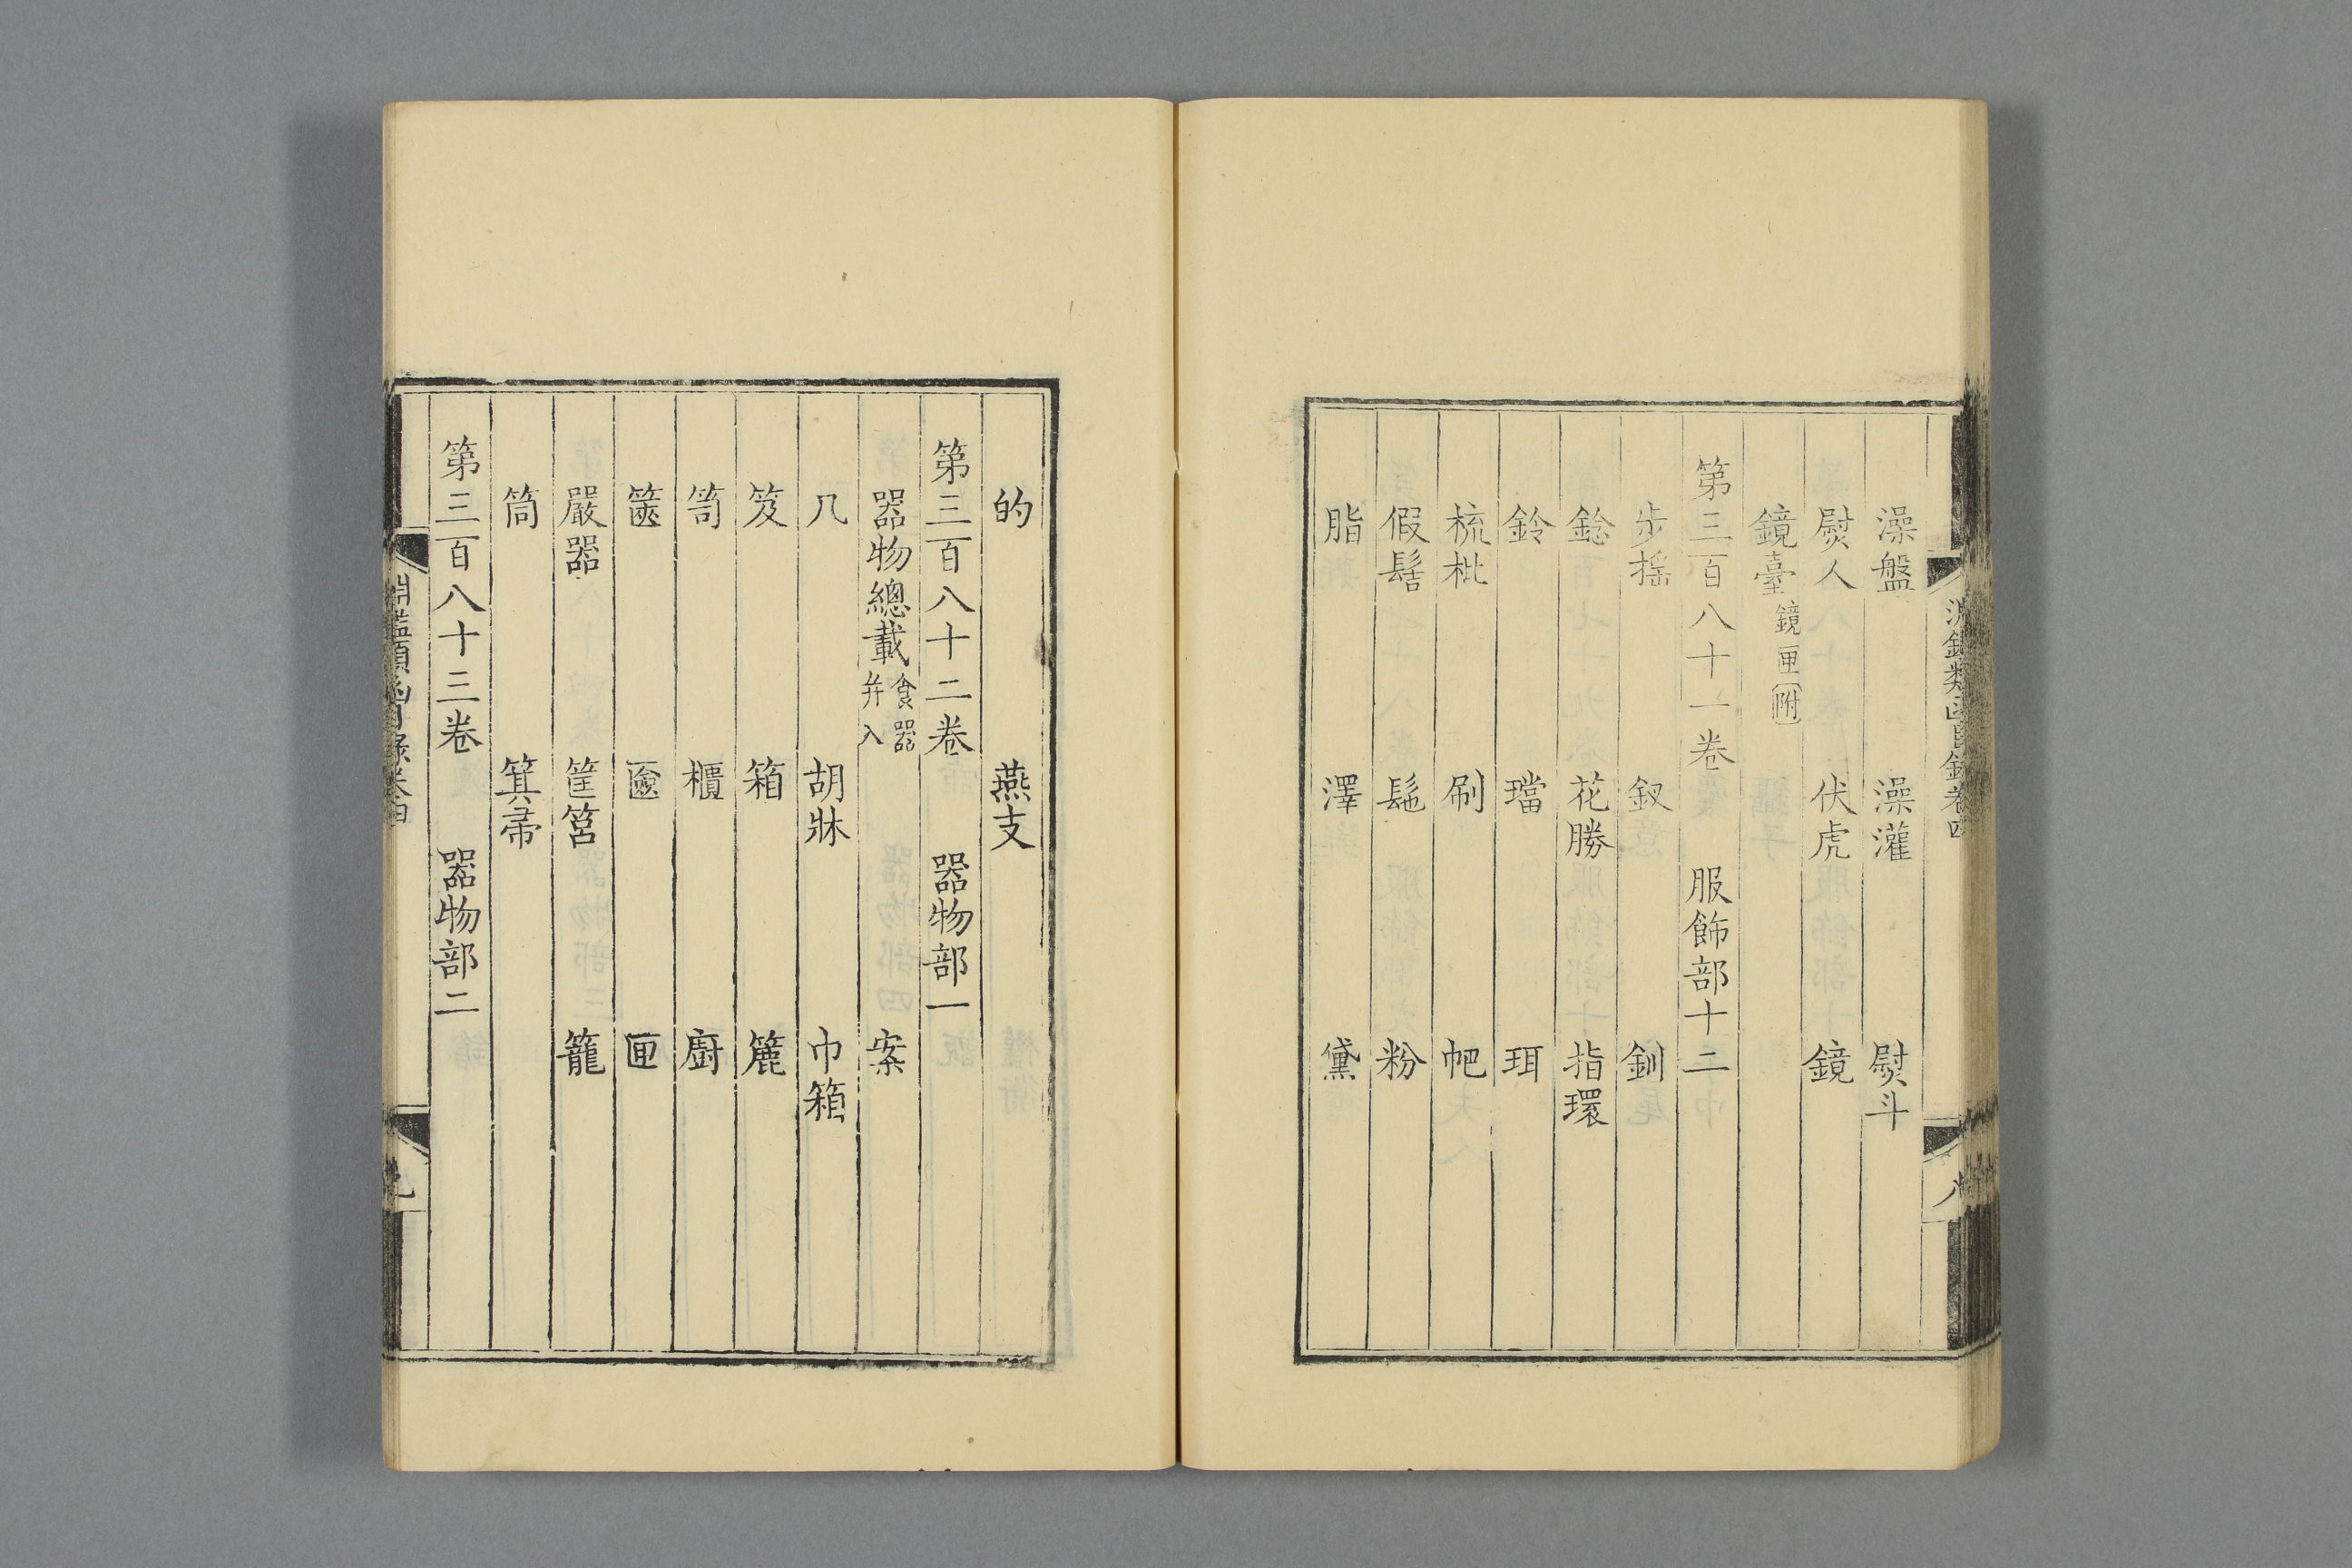 淵鑑類函目錄卷四
八
澡盤　澡灌　熨斗
熨人　伏虎　鏡
鏡臺鏡匣附
第三百八十一卷　服飾部十二
步摇　釵　釧
鋑　花勝　指環
鈴　璫　珥
梳枇　刷　帊
假髻　髢　粉
脂　澤　黛
的　燕支
第三百八十二卷　器物部一
器物總載食器并入　案
几　胡牀　巾箱
笈　箱　簏
笥　櫃　廚
篋　匳　匣
嚴器　筐筥　籠
筒　箕帚
第三百八十三卷　器物部二
淵鑑類函目錄卷四
九